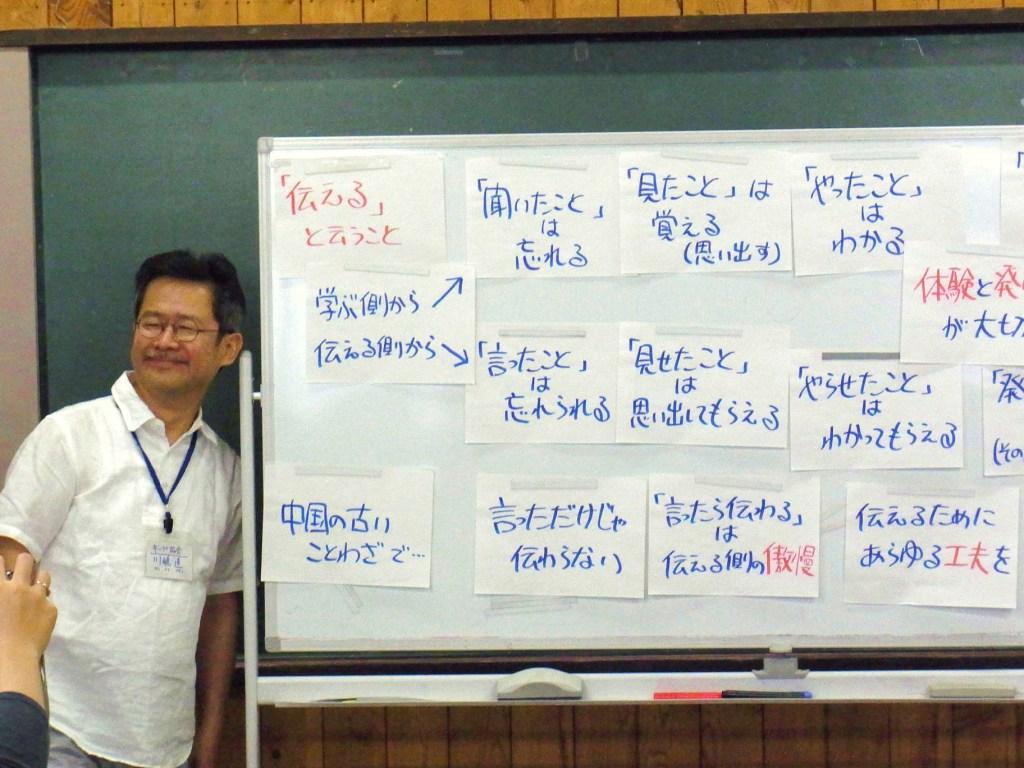 「伝える」
と云うこと
「聞いたこと」
は
忘れる
「見たこと」は
覚える
(思い出す)
「やったこと」
は
わかる
学ぶ側から
伝える側から
体験と発
が大切
「言ったこと」
は
忘れられる
「見せたこと」
は
思い出してもらえる
「やらせたこと」
は
わかってもらえる
「発
(その
中国の古い
ことわざで…
言っただけじゃ
伝わらない
「言ったら伝わる」
は
伝える側の傲慢
伝えるために
あらゆる工夫を